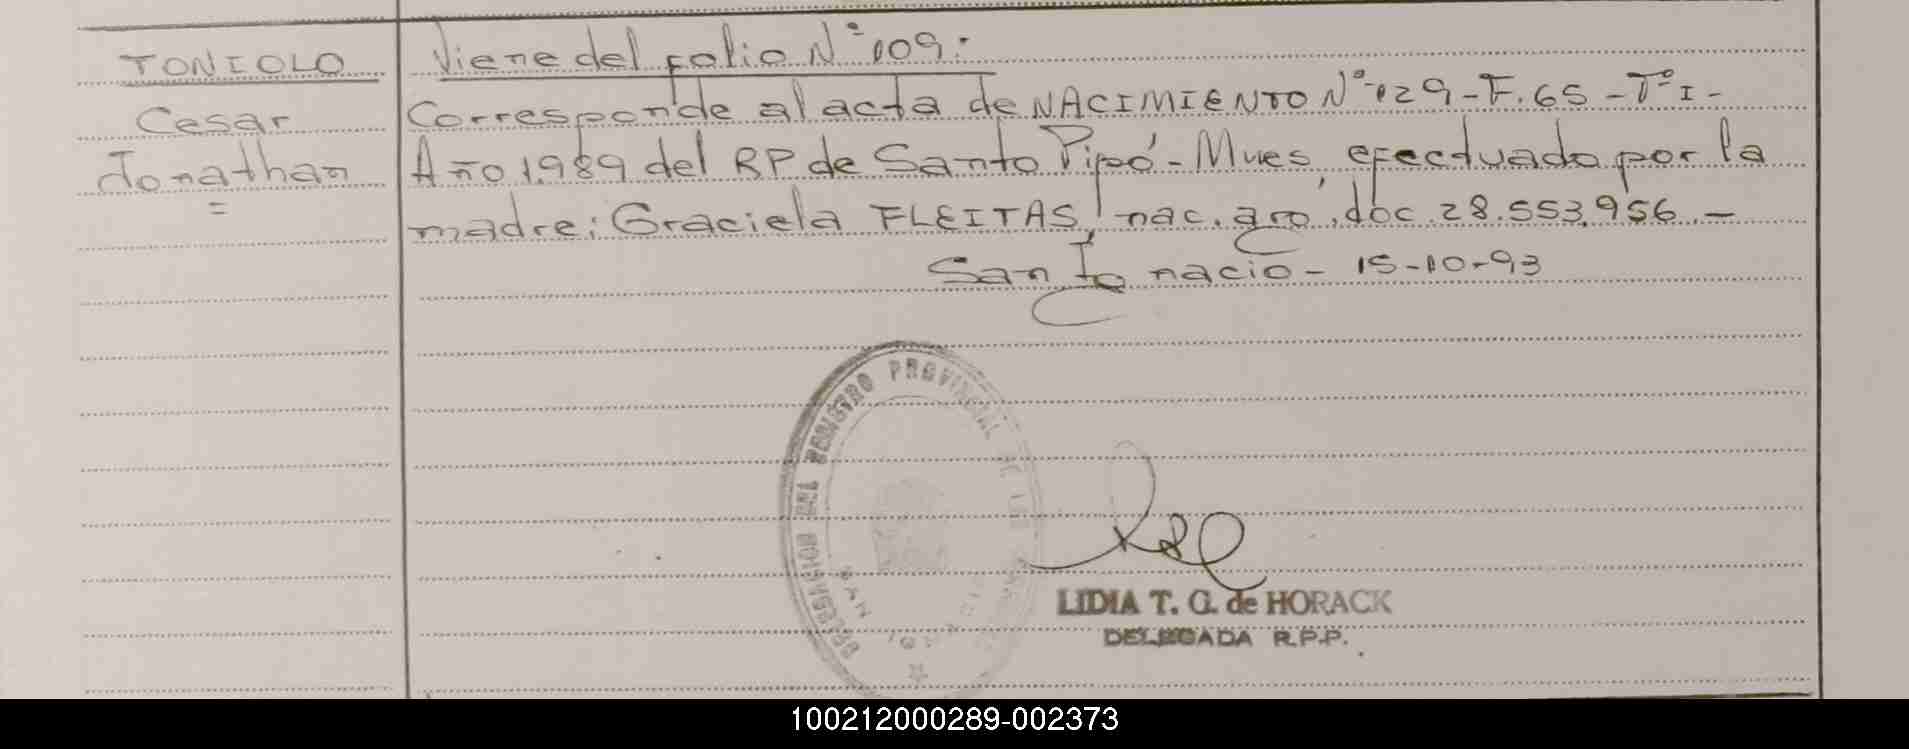 TONIOLO
Cesar
Jonathan
=
Viene del folio N° 109:
Corresponde al acta de NACIMIENTO N° 129-F.65-T°I-
Año 1.989 del RP de Santo Pipó-Mnes, efectuado por la
madre: Graciela FLEITAS, nac. arg., doc. 28.553.956.-
San Ignacio- 15-10-93
DELEGACION DEL REGISTRO PROVINCIAL DE LAS
SAN
LIDIA T. G. de HORACK
DELEGADA R.P.P.
100212000289-002373